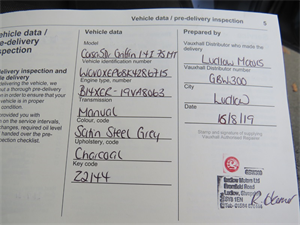 Vehicle data / pre-delivery inspection 5
ehicle data /
re-delivery
nspection
delivery inspection and
e delivery
ne delivery of the vehicle, we
out a thorough pre-delivery
n in order to ensure that your
vehicle is in proper
condition.
provided you with
on the service intervals,
changes, required oil level
handed over the pre-
nspection checklist.
Vehicle data
Model
Corsa 5dr Griffin 1.4i 75 MT
Vehicle identification number
Engine type, number
Transmission
Manual
Colour, code
Satin Steel Grey
Upholstery, code
Charcoal
Key code
Z2144
Prepared by
Vauxhall Distributor who made the
delivery
Ludlow Motors
Vauxhall Distributor number
GBW300
City
Ludlow
Date
15/8/19
Stamp and signature of supplying
Vauxhall Authorised Repairer
Ludlow Motors Ltd
Bromfield Road
Ludlow, Shropshire
SY8 1EN